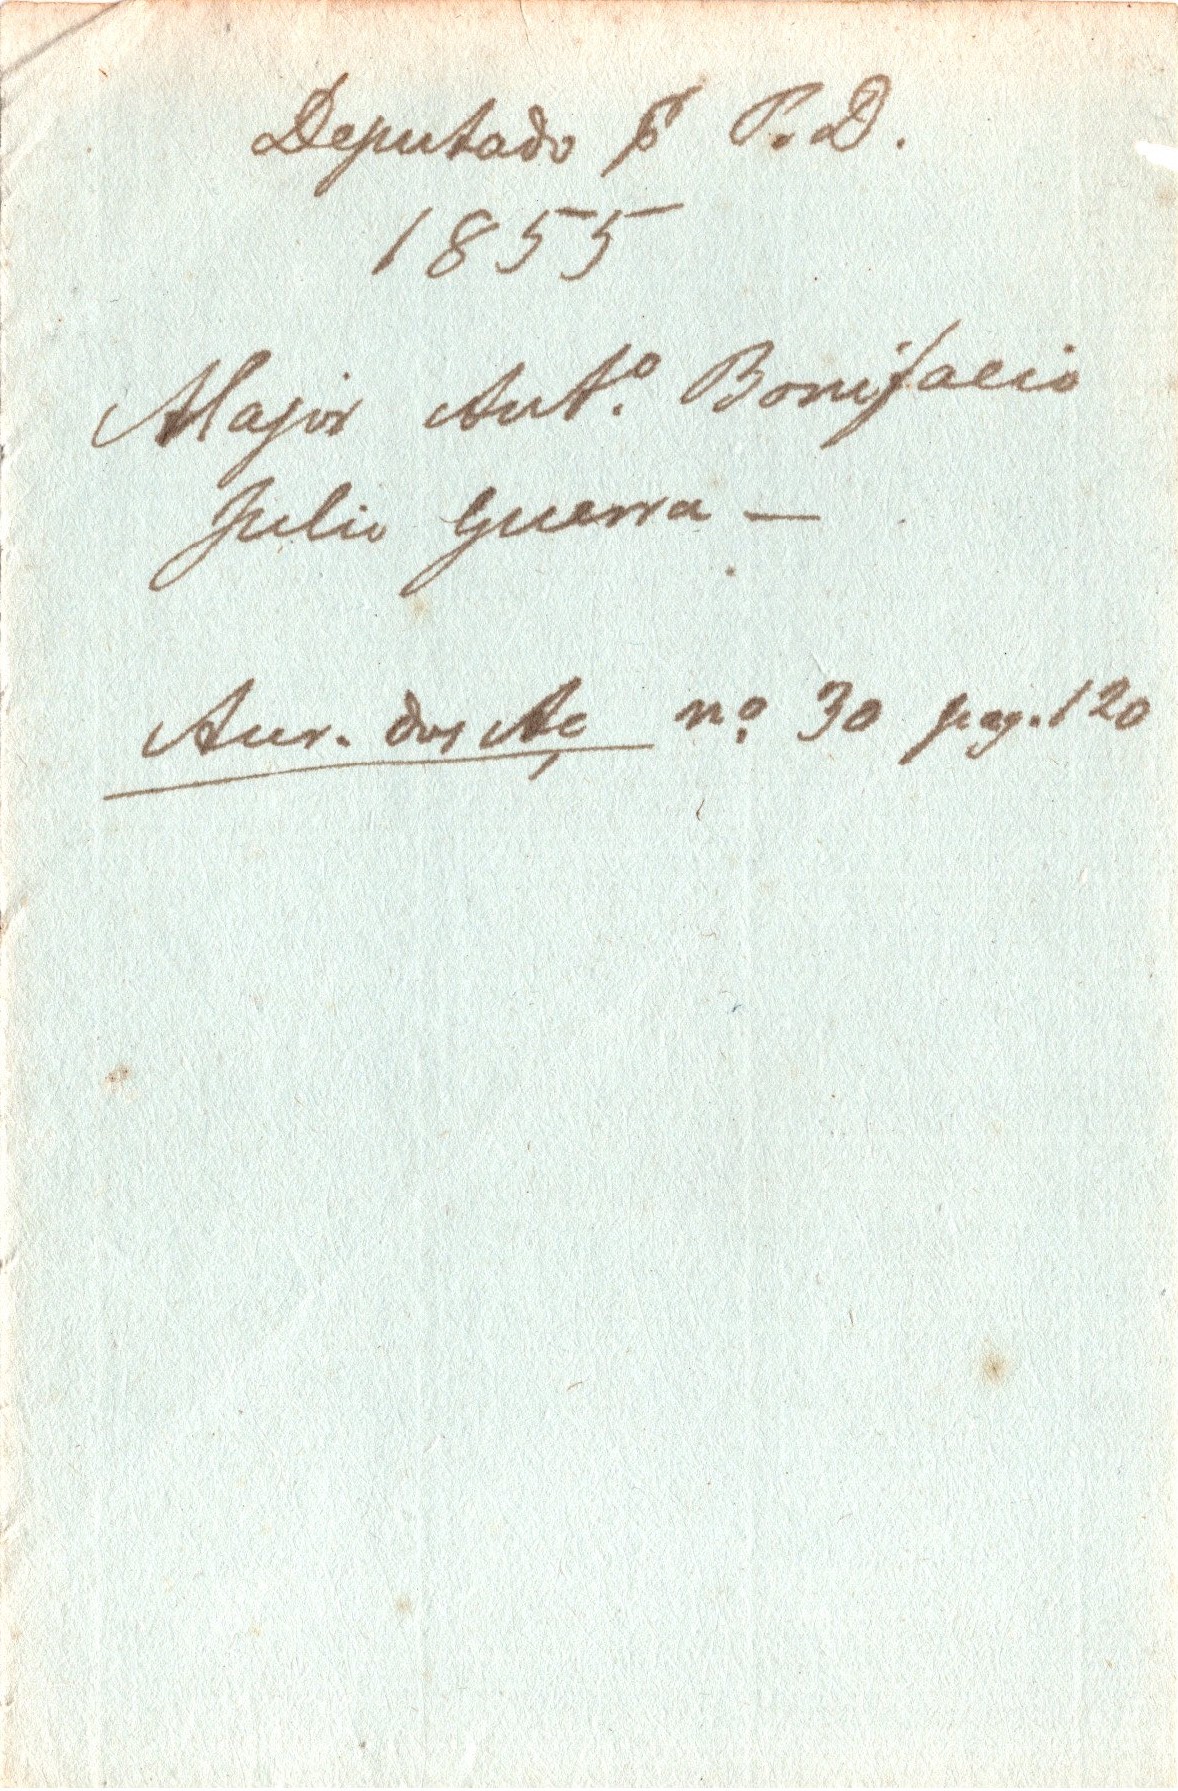 Deputado P P. D.
1855
Major Antº. Bonifacio
Julio Guerra —
dos Aç nº 30 pag. 120